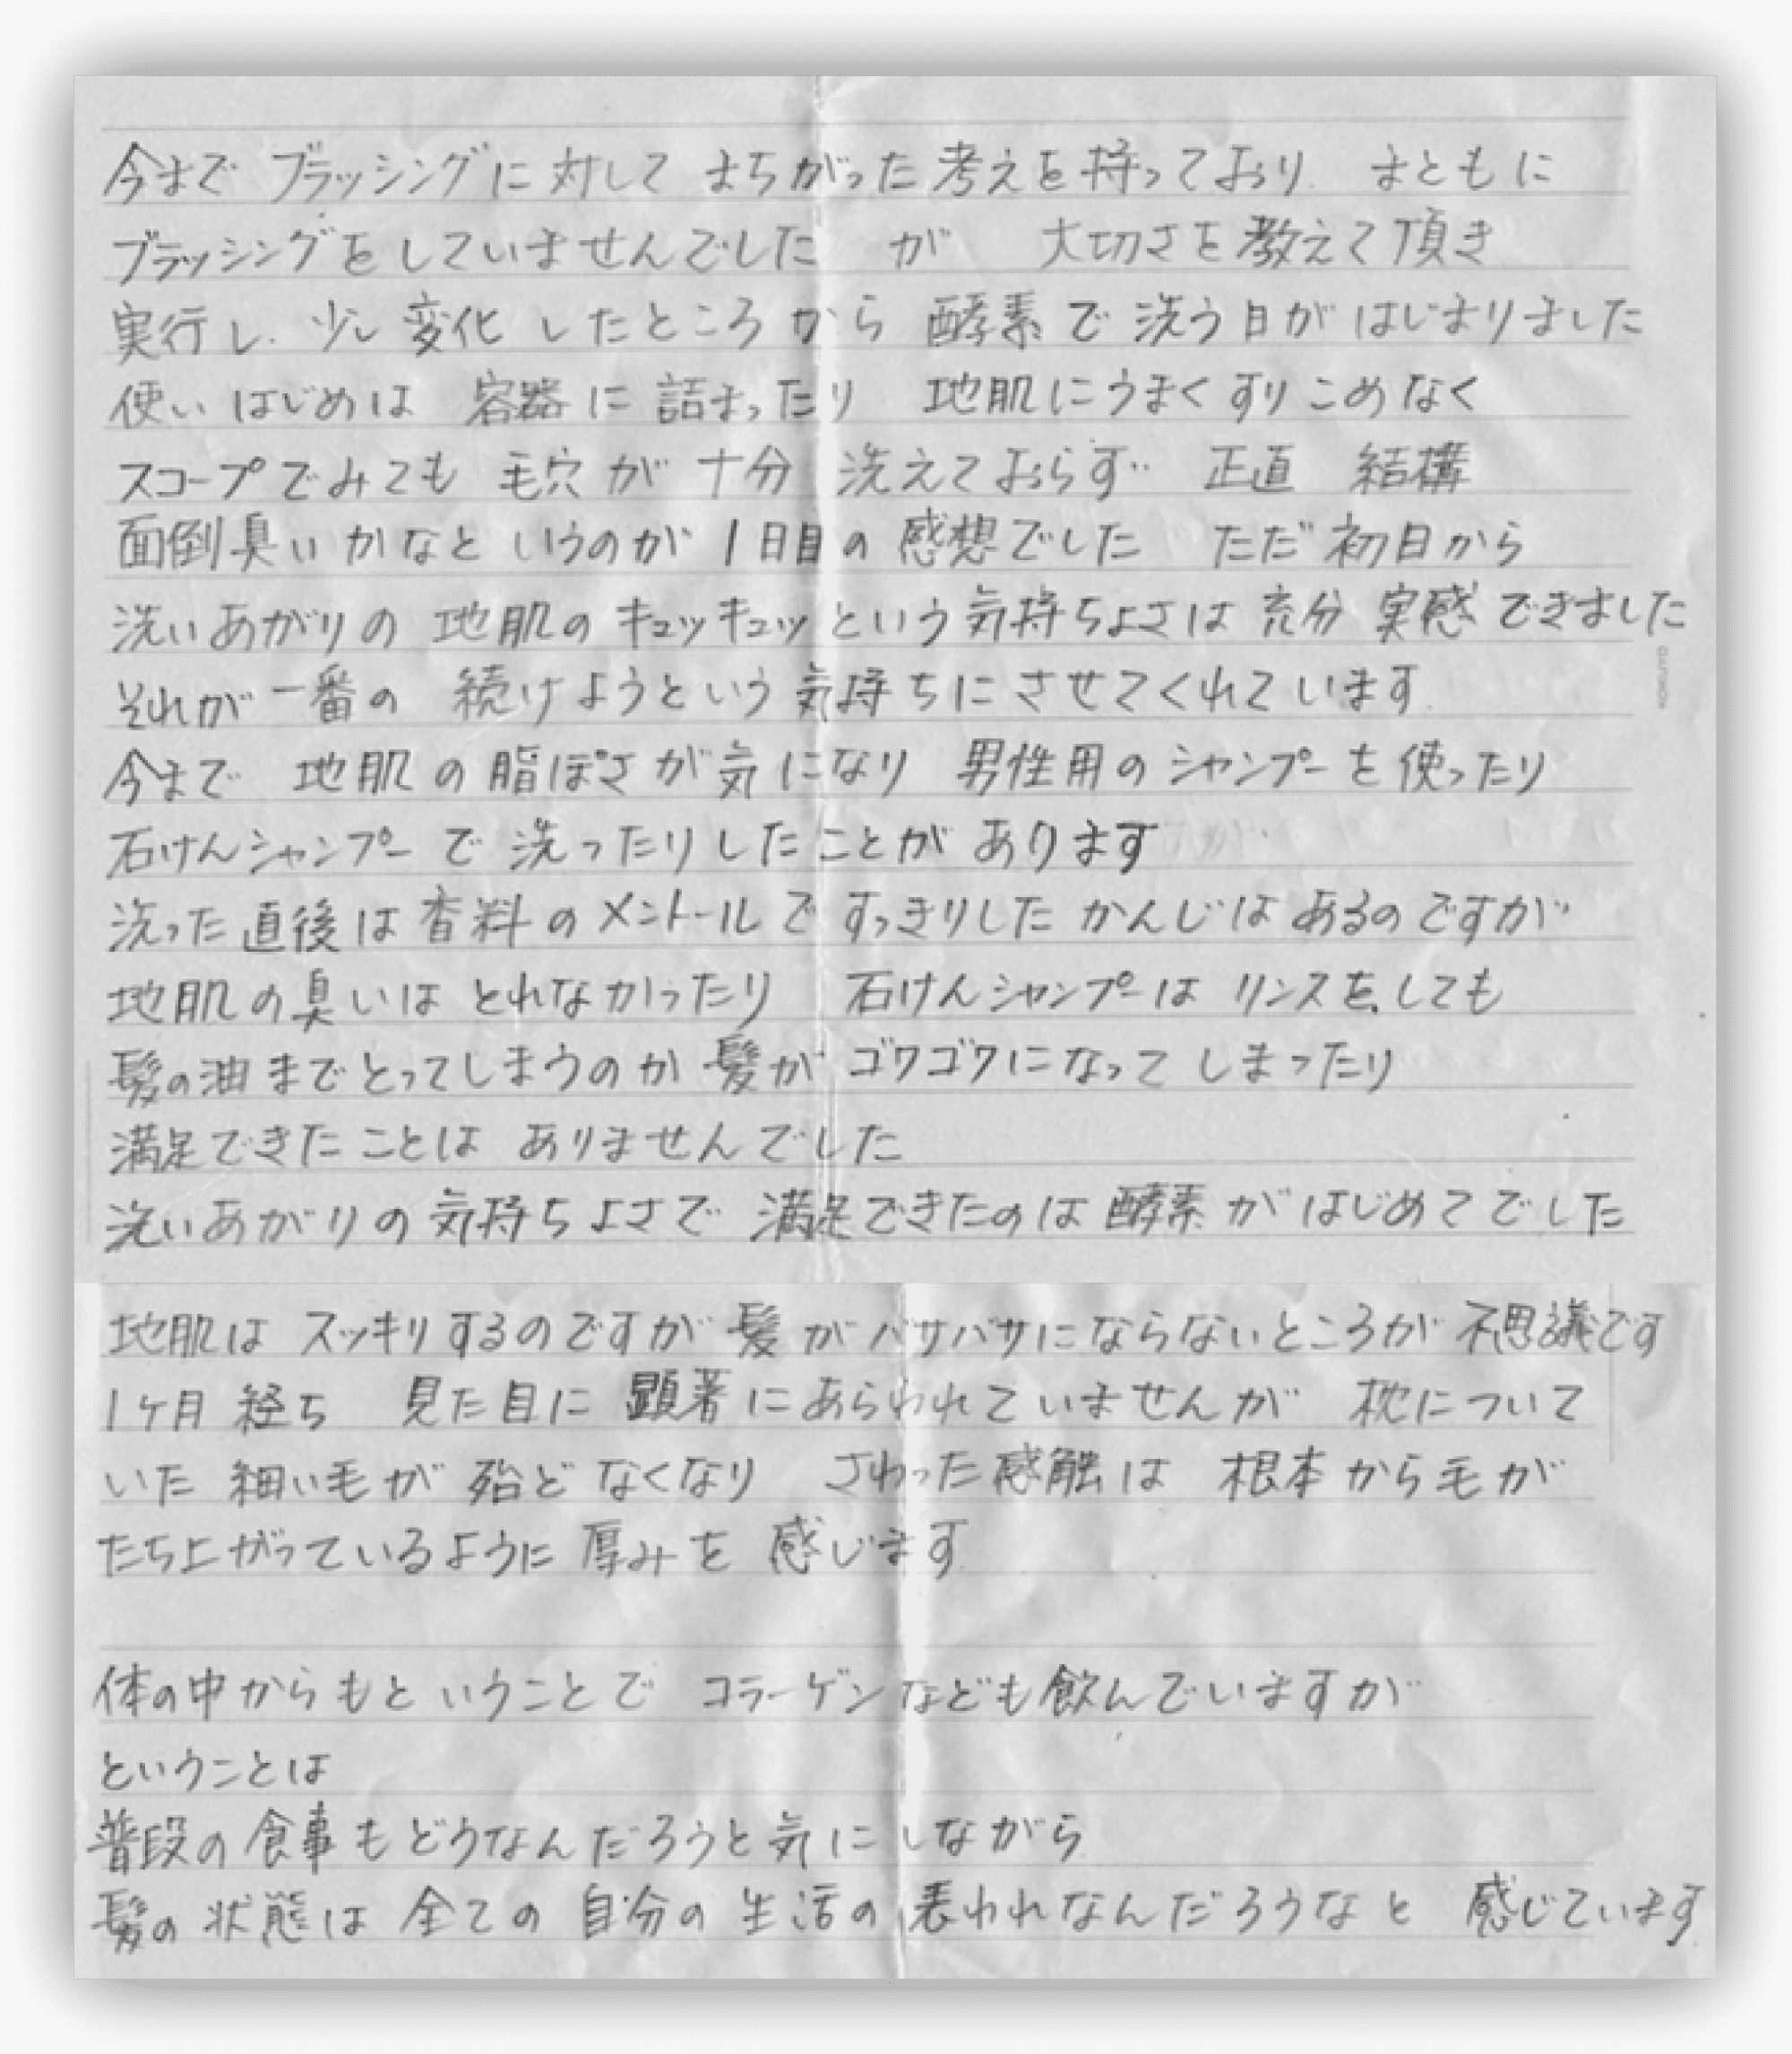 今まで ブラッシングに対して まちがった考えを持っており まともに
ブラッシングをしていませんでした が 大切さを教えて頂き
実行し、少し変化したところから 酵素で洗う日がはじまりました
使いはじめは 容器に詰まったり 地肌にうまくすりこめなく
スコープでみても 毛穴が十分 洗えておらず‥ 正直 結構
面倒臭いかなというのが1日目の感想でした ただ初日から
洗いあがりの地肌のキュッキュッという気持ちよさは充分実感できました
それが一番の 続けようという気持ちにさせてくれています
今まで 地肌の脂ぽさが気になり 男性用のシャンプーを使ったり
石けんシャンプーで洗ったりしたことがあります
洗った直後は香料のメントールですっきりしたかんじはあるのですが
地肌の臭いはとれなかったり 石けんシャンプーはリンスをしても
髪の油までとってしまうのか髪がゴワゴワになってしまったり
満足できたことはありませんでした
洗いあがりの気持ちよさで満足できたのは酵素がはじめてでした
地肌はスッキリするのですが髪がバサバサにならないところが不思議です
1ヶ月経ち 見た目に顕著にあらわれていませんが 枕について
いた細い毛が殆どなくなり さわった感触は 根本から毛が
たち上がっているように厚みを感じます
体の中からもということで コラーゲンなども飲んでいますが
ということは
普段の食事もどうなんだろうと気にしながら
髪の状態は全ての自分の生活の表われなんだろうなと 感じています